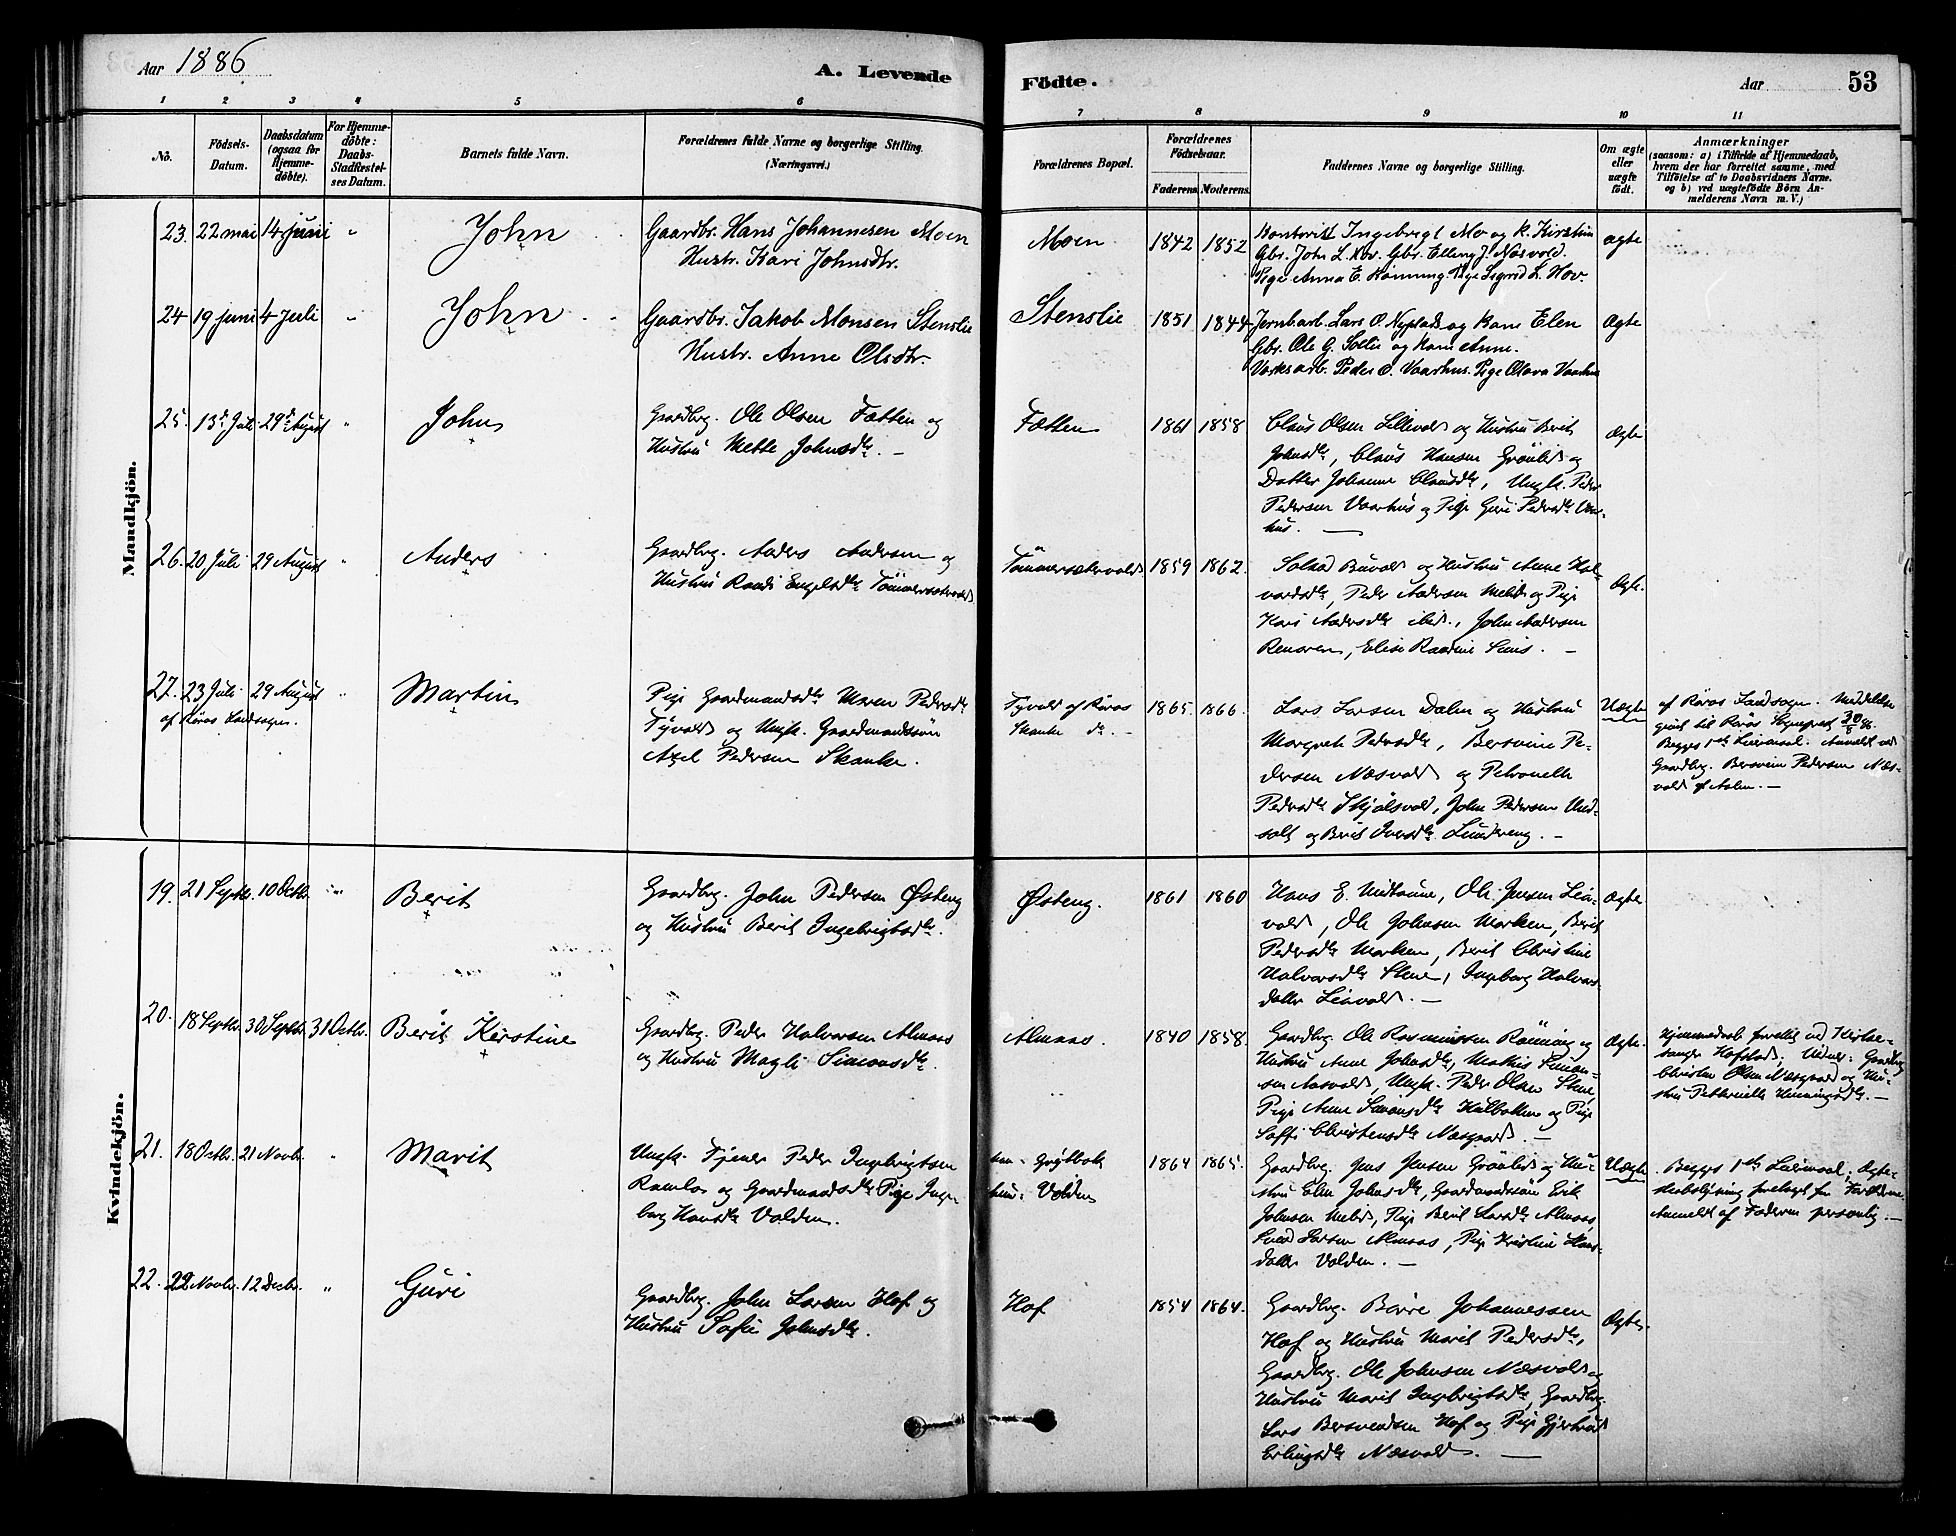 Aar 1886
A. Levende
Födte.
Aar
53
1 2 3 4 5 6 7 8 9 10 11
No.
Födsels-
Datum.
Daabsdatum
(ogsaa for
Hjemme-
döbte).
For Hjemme-
döbte:
Daabs-
Stadfæstel-
ses Datum.
Barnets fulde Navn.
Forældrenes fulde Navne og borgerlige Stilling.
(Næringsvei.)
Forældrenes Bopæl.
Forældrenes
Födselsaar.
Faderens. Moderens.
Faddernes Navne og borgerlige Stilling.
Om ægte
eller
uægte
födt.
Anmærkninger
(saasom: a) i Tilfælde af Hjemmedaab,
hvem der har forrettet samme, med
Tilföielse af to Daabsvidners Navne.
og b) ved uægtefödte Börn An-
melderens Navn m. V.)
Mandkjön.
23. 22 mai 14 juni " John
Gaardbr. Hans Johannesen Moen
Hustr. Kari Johnsdtr.
Moen 1842 1852
Ingebrigt Mo og K. Kirstine
Gbr. John L. Hov. Gbr. Elling J. Nesvold.
Pige Anna E. Rönning Pige Sigrid L. Hov.
ægte
24 19 juni 4 juli " John
Gaardbr. Jakob Monsen Stenslie
Hustr. Anne Olsdtr.
Stenslie 1851 1844
Jernbarb. Lars O. Nyplads og Kone Elen
Gbr. Ole G. Solli og Kone Anne.
Værksarb. Peder O. Vaarhus. Pige Olava Vaarhus
Ægte
25. 13de Juli 29de August " John
Gaardbrg. Ole Olsen Fætten og
Hustru Mette Johnsdtr. —
Fætten 1861 1858
Claus Olsen Lillevold og Hustru Berit
Johnsdtr, Claus Hansen Grönli og
Datter Johanne Clausdtr, Ungk. Peder
Pedersen Vaarhus og Pige Guri Pedersdtr Vaar-
hus. —
Ægte
26. 20 Juli 29 August " Anders
Gaardbrg. Anders Andersen og
Hustru Randi Engelsdtr Tömmersætervold
Tömmersætervold 1859 1862.
og Hustru Anne Hal-
vardsdtr, Peder Andersen og Pige
Kari Andersdtr ibid., John Andersen
Renoren, Elise Randine
Ægte.
27. 23 Juli 29 August " Martin
af Röros Landsogn.
Pige Gaardmandsdtr Maren Pedersdtr
Tyvold og Ungk. Gaardmandssön
Axel Pedersen Skanke.
Tyvold af Röros
Skanke do. —
1865 1866.
Lars Larsen Dalen og Hustru
Margrete Pedersdtr, Bersvein Pe-
dersen Næsvold og Petronelle
Pedersdtr Skjölsvold, John Pedersen
og Berit Iversdtr Lundereng. —
Uægte
af Röros Landsogn. Meddelelse
givet til Röros Sognepræst 30/8 86.
Begges 1ste Leiermaal. Anmeldt ved
Gaardbrg. Bersvein Pedersen Næs-
vold af Aalen. —
Kvindekjön.
19. 21 Septbr. 10 Octb. " Berit
Gaardbrg. John Pedersen Østeng
og Hustru Berit Ingebrigtsdtr.
Østeng. 1861 1860
Hans E. Midtaune, Ole Jensen Lea-
vold, Ole Johnsen Morken, Berit
Pedersdtr Morken, Berit Christine
Halvorsdtr Stene, Ingeborg Halvors-
datter Leavold. —
Ægte
20. 18 Septbr. 30 Septbr. 31 Octbr. Berit Kirstine
Gaardbrg. Peder Halvorsen Almaas
og Hustru Magli Simonsdtr.
Almaas. 1840 1858.
Gaardbrg. Ole Rasmussen Rönning og
Hustru Anne Johnsdtr, Mathis Simon-
sen Aasvold, Ungk. Peder Olsen Stene,
Pige Anne Simonsdtr Kulbotten og Pige
Soffi Christensdtr Næsgaard. —
Ægte.
Hjemmedaab forrettet ved Kirke-
sanger Hofstad. Vidner: Gaardbrg
Christen Olsen Næsgaard og Hu-
stru Petternille Henningsdtr. —
21. 18 Octb. 21 Novb. " Marit
Ungk. Tjener Peder Ingebrigtsen
Ramlo og Gaardmandsdtr Pige Inge-
borg Hansdtr Volden.
han: Grytbak
hun: Volden
1864 1865.
Gaardbrg. Jens Jensen Gröntli og Hu-
stru Elen Johnsdtr, Gaardmandssön Erik
Johnsen Pige Berit Larsdtr Almaas,
Svend Larsen Almaas, Pige Kristine Hans-
datter Volden. —
Uægte
Begges 1ste Leiermaal, Ægte-
skabslysning forlangt for Forældrene.
Anmeldt af Faderen personlig. —
22. 22 Novbr. 12 Decbr. " Guri
Gaardbrg. John Larsen Hof og
Hustru Sofie Johnsdtr.
Hof 1854 1864.
Gaardbrg. Börre Johannessen
Hof og Hustru Marit Pedersdtr,
Gaardbrg. Ole Johnsen Næsvold og
Hustru Marit Ingebrigtsdtr, Gaardbrg.
Lars Bersvendsen Hof og Pige Gjertrud
Erlingsdtr Næsvold. —
Ægte.